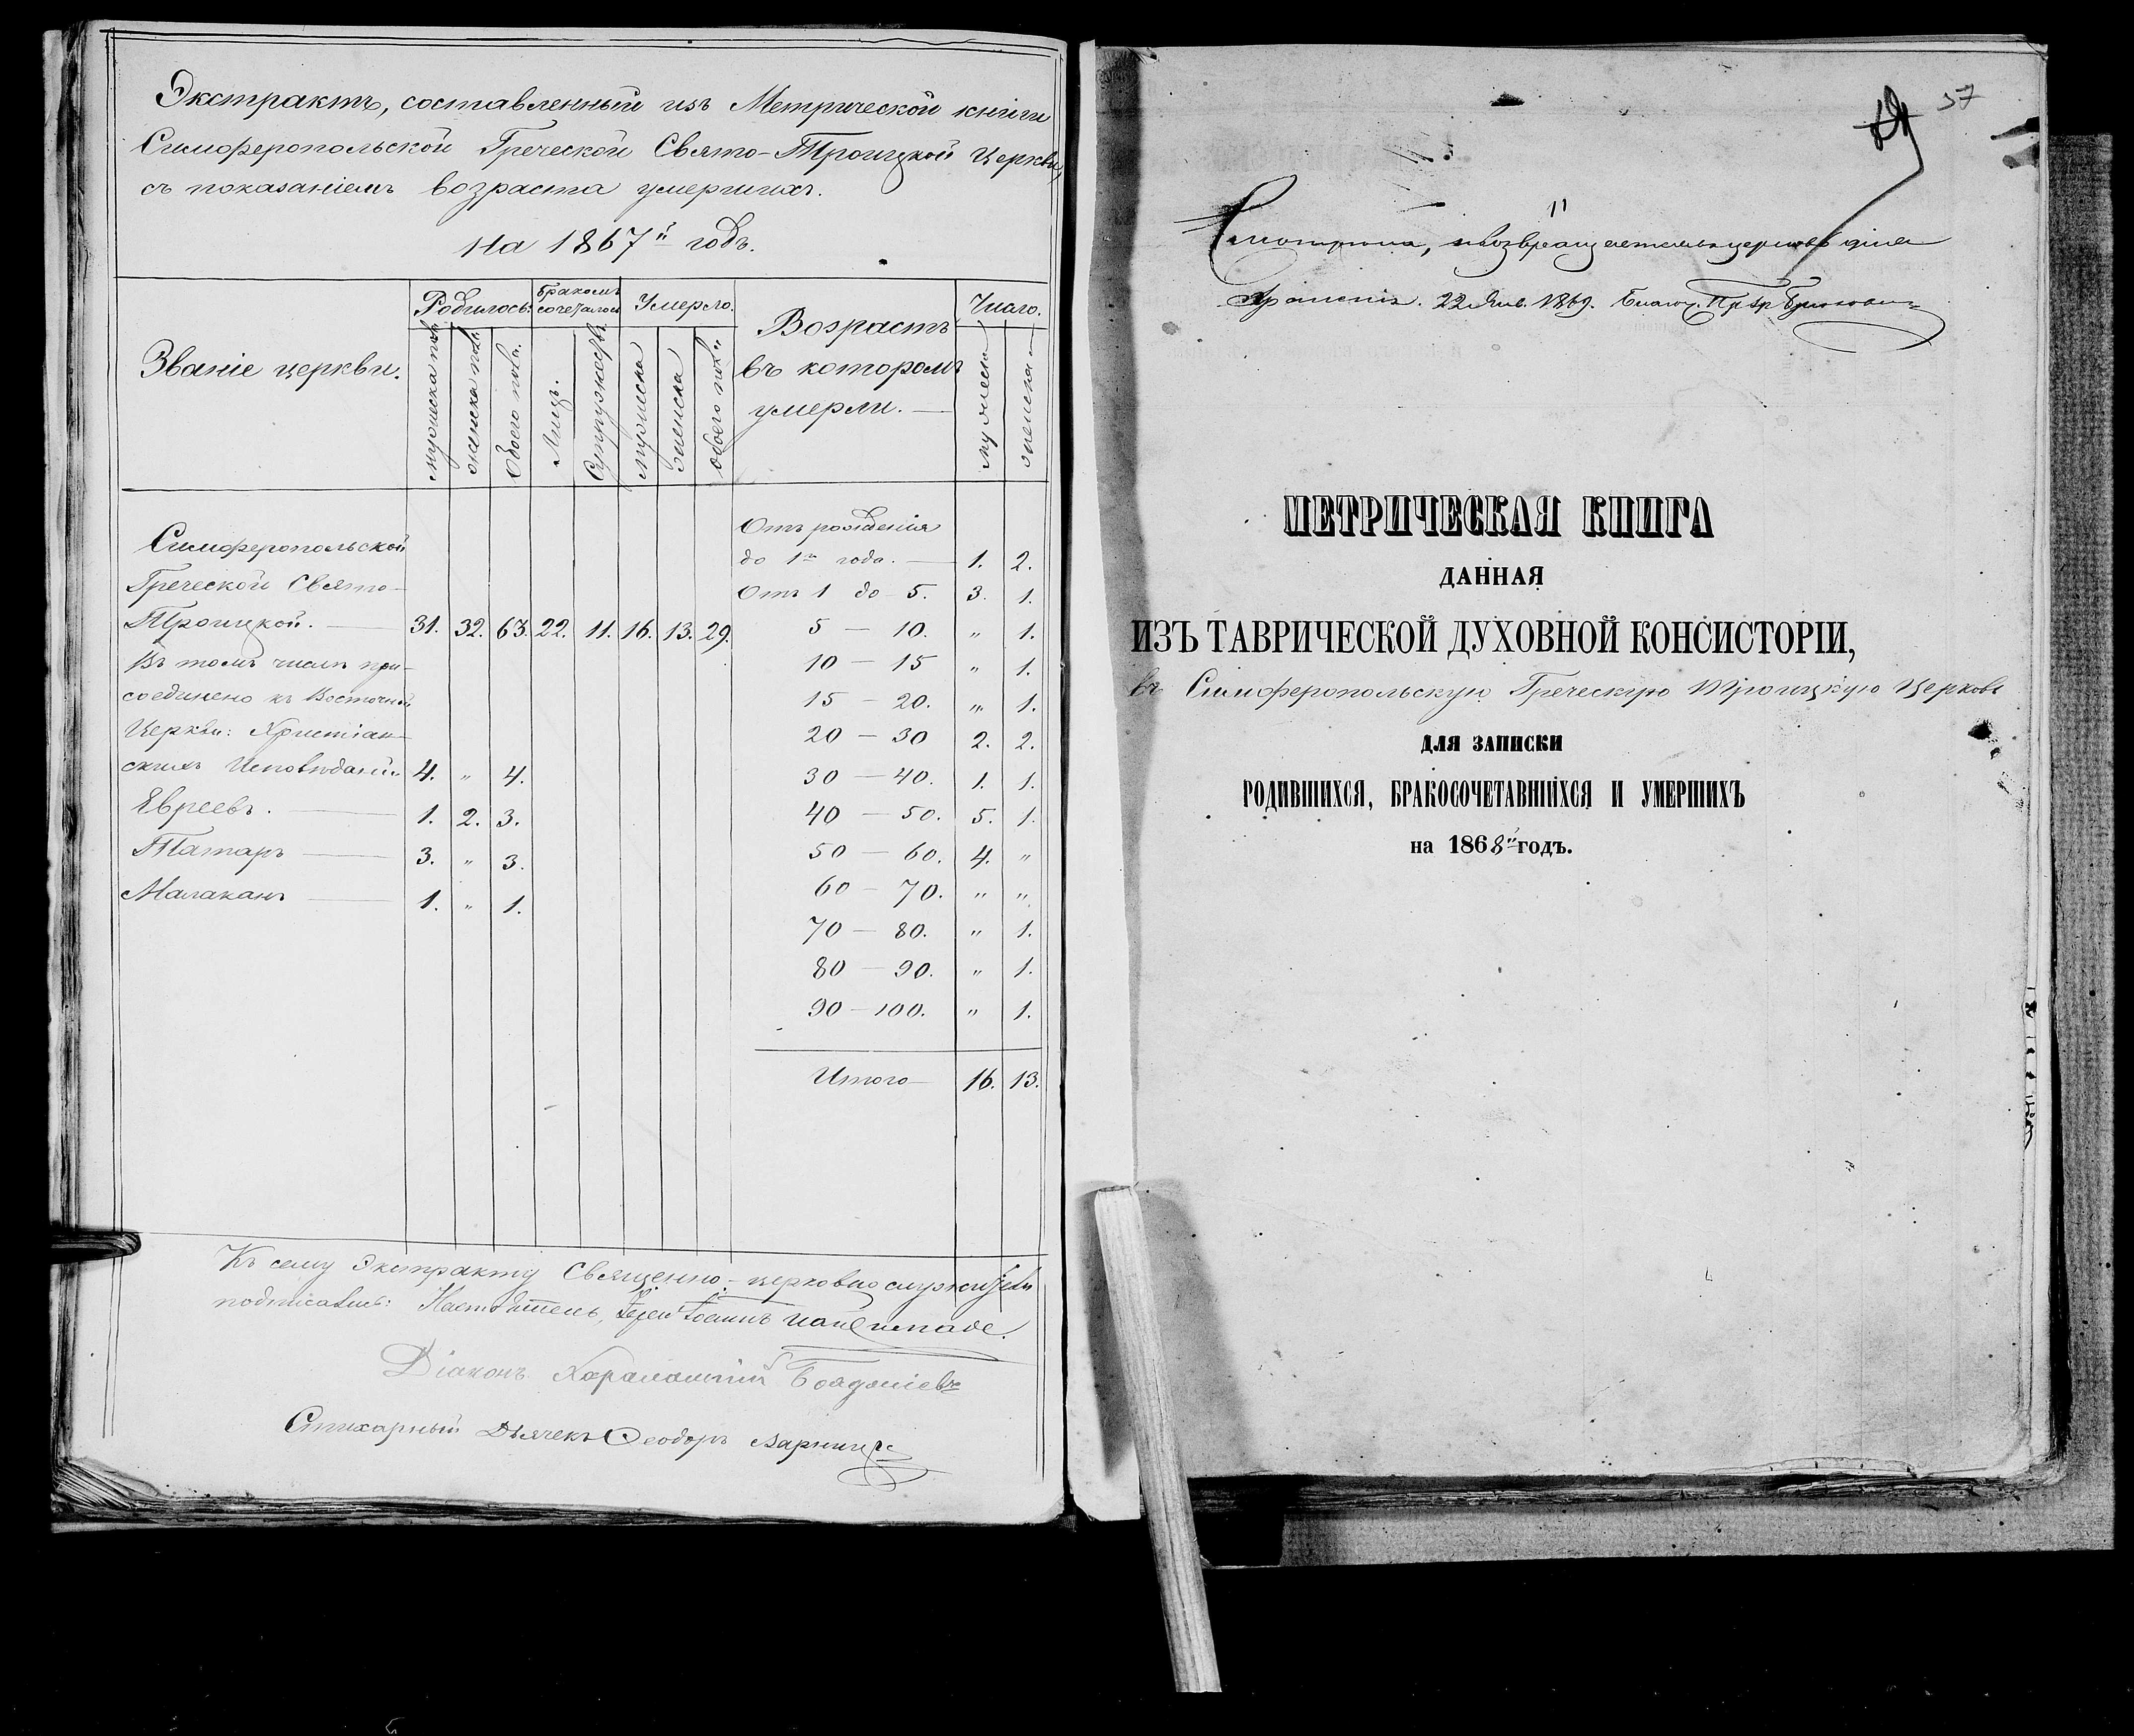 Экстрактъ, составленный изъ Метрической книги
Симферопольской Греческой Свято-Троицкой Церкви,
съ показаніемъ возраста умершихъ.
На 1867й годъ.
Званіе церкви.
Родилось:
Бракомъ сочеталось
Умерло.
Возрастъ въ которомъ умерли.
Число.
мужеска пола
женска пола
обоего пола.
Лицъ.
Супружествъ.
мужеска
женска
обоего пола
мужеска
женска
Симферопольской
Греческой Свято-
Троицкой. 31. 32. 63. 22. 11. 16. 13. 29.
Въ томъ числѣ при-
соединено къ Восточной
Церкви: Христіан-
скихъ Исповѣданій 4. „ 4.
Евреевъ. 1. 2. 3.
Татаръ 3. „ 3.
Малаканъ 1. „ 1.
Отъ рожденія
до 1го года. 1. 2.
Отъ 1 до 5. 3. 1.
5 — 10. „ 1.
10 — 15 „ 1.
15 — 20. „ 1.
20 — 30 2. 2.
30 — 40. 1. 1.
40 — 50. 5. 1.
50 — 60. 4. „
60 — 70. „ „
70 — 80. „ 1.
80 — 90. „ 1.
90 — 100. „ 1.
Итого 16. 13.
Къ сему Экстракту Священно-церковно служители
подписались: Настоятель, Іерей Іоаннъ
Діаконъ Харалампій
Стихарный Дьячекъ Ѳеодоръ
57
11
церковь для
храненія. 22 Янв. 1869.
МЕТРИЧЕСКАЯ КНИГА
ДАННАЯ
ИЗЪ ТАВРИЧЕСКОЙ ДУХОВНОЙ КОНСИСТОРІИ,
въ Симферопольскую Греческую Троицкую Церковь
ДЛЯ ЗАПИСКИ
РОДИВШИХСЯ, БРАКОСОЧЕТАВШИХСЯ И УМЕРШИХЪ
на 1868й годъ.